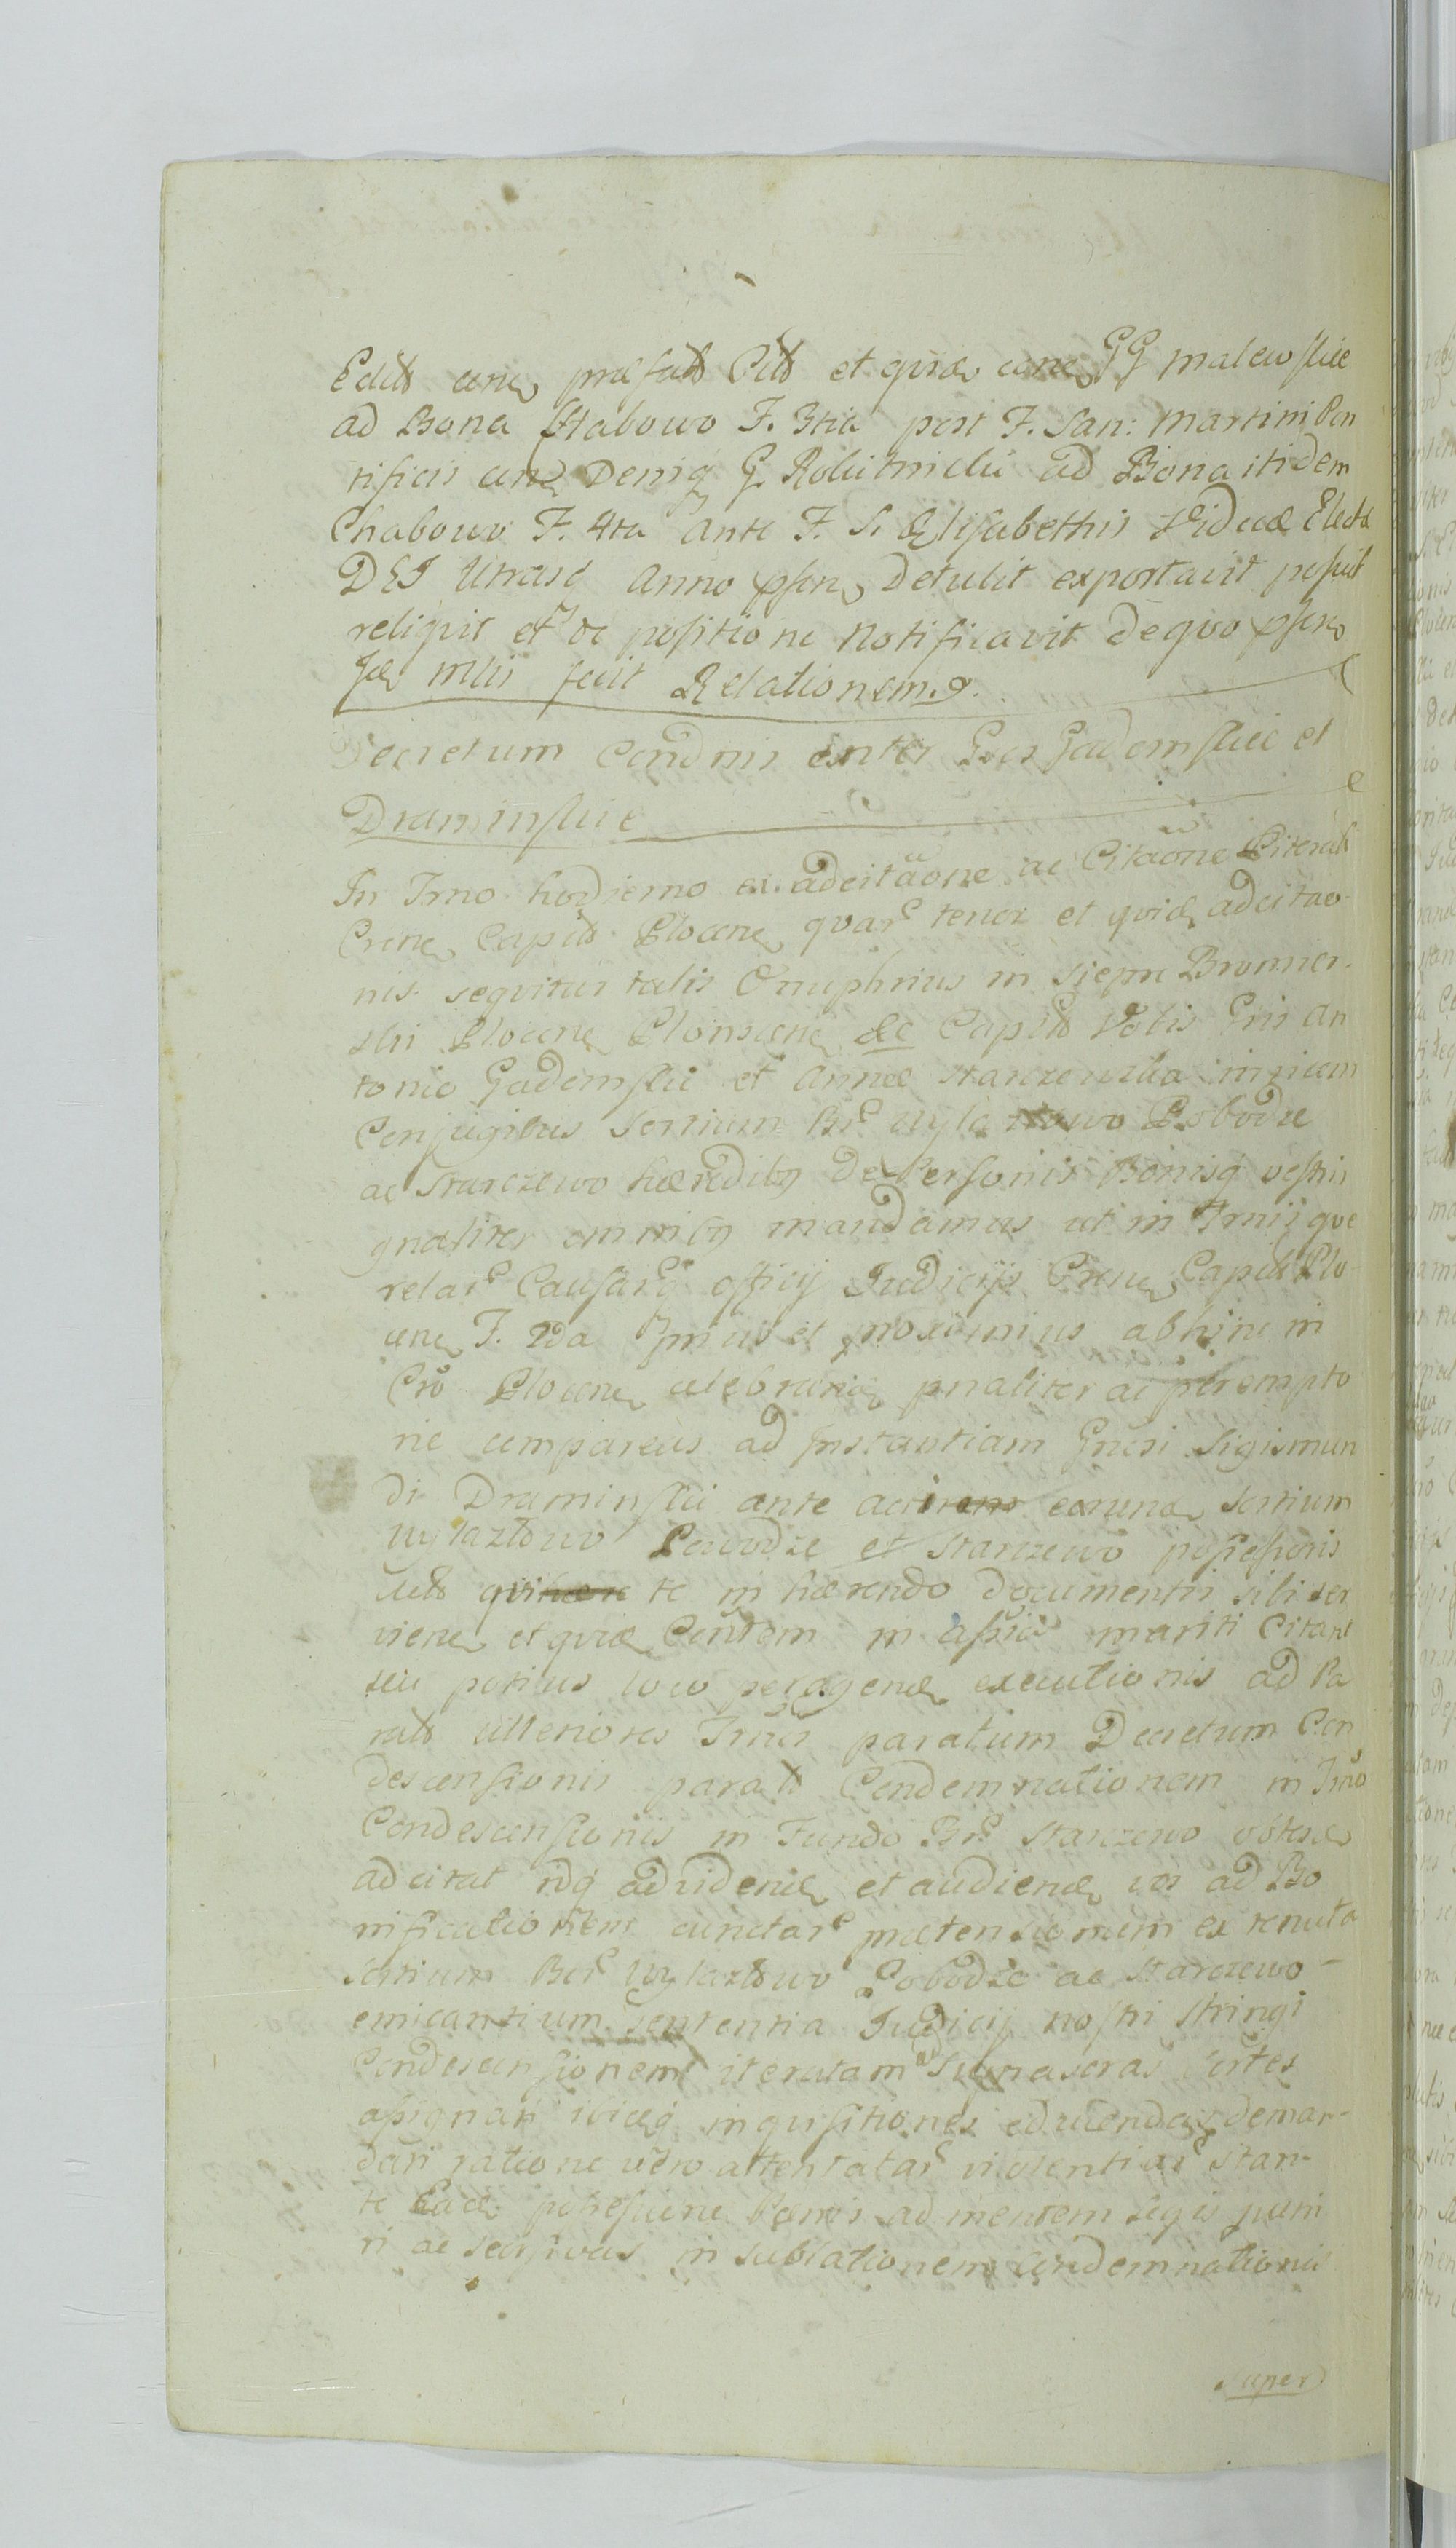 Edits cene præfats Cits et quidæ cene GG Malewskie
ad Bona Chabowo F. 3tia post F. San: Martini Pon
tificis cene Deniq G. Robitnicki ad Bona itidem
Chabowo F. 4ta Ante F. S. Elisabethis Viduæ Electæ
DEI Utrasq Anno psen Detulit exportavit posuit
reliquit et de positione Notificavit de quo psen
Jæ Mlis fecit Relationem.
Decretum Condnis inter Gsos Gademskie et
Draminskie
In Trno hodierno ex adcitaone ac Citaone Literali
Crene Capits Plocene quar tenor et quidæ adcitao
nis sequitur talis Onuphrius in Siepre Bromier
ski Plocene Plonscene &c Capits Vobis Gsis An
tonio Gademskie et Annæ Starczewska invicem
Conjugibus Sortium Br Wylazłowo Pobodze
ac Starczewo hæredibg De Personis Bonisq vestris
gnaliter omnibg mandamus ut in Trnis que
relar Causarq officij Judicijs Crene Capits Plo
cene F. 2da prius et proximius abhinc in
Cro Plocene celebrane pnaliter ac perempto
rie compareas ad Instantiam Gnesi Sigismun
di Draminski ante earunæ Sortium
Wylazłowo Powodze et Starczewo possessoris
Acts te inhærendo documentis sibi ser
viene et quidæ Condem in assia mariti Citant
seu potius loco peragenæ executionis ad Pa
rats ulteriores Trnos paratum Decretum Con
descensionis parats Condemnationem in Trno
Condescensionis in Fundo Br Starczewo
adcitat idq ad videnæ et audienæ vos ad Bo
nificationem cunctar prætensionum ex tenuta
Sortium Bor Wylazłowo Pobodze ac Starczewo
emicantium Sententia Judicij nostri Stringi
Condescensionem iteratam ad suprascras Sortes
assignari ibidæq inquisitiones educendas deman
dari ratione vero attentatar violentiar stan
te possessione Pœnis ad mentem Legis puni
ri ac Secivus in sublationem condemnationis
super